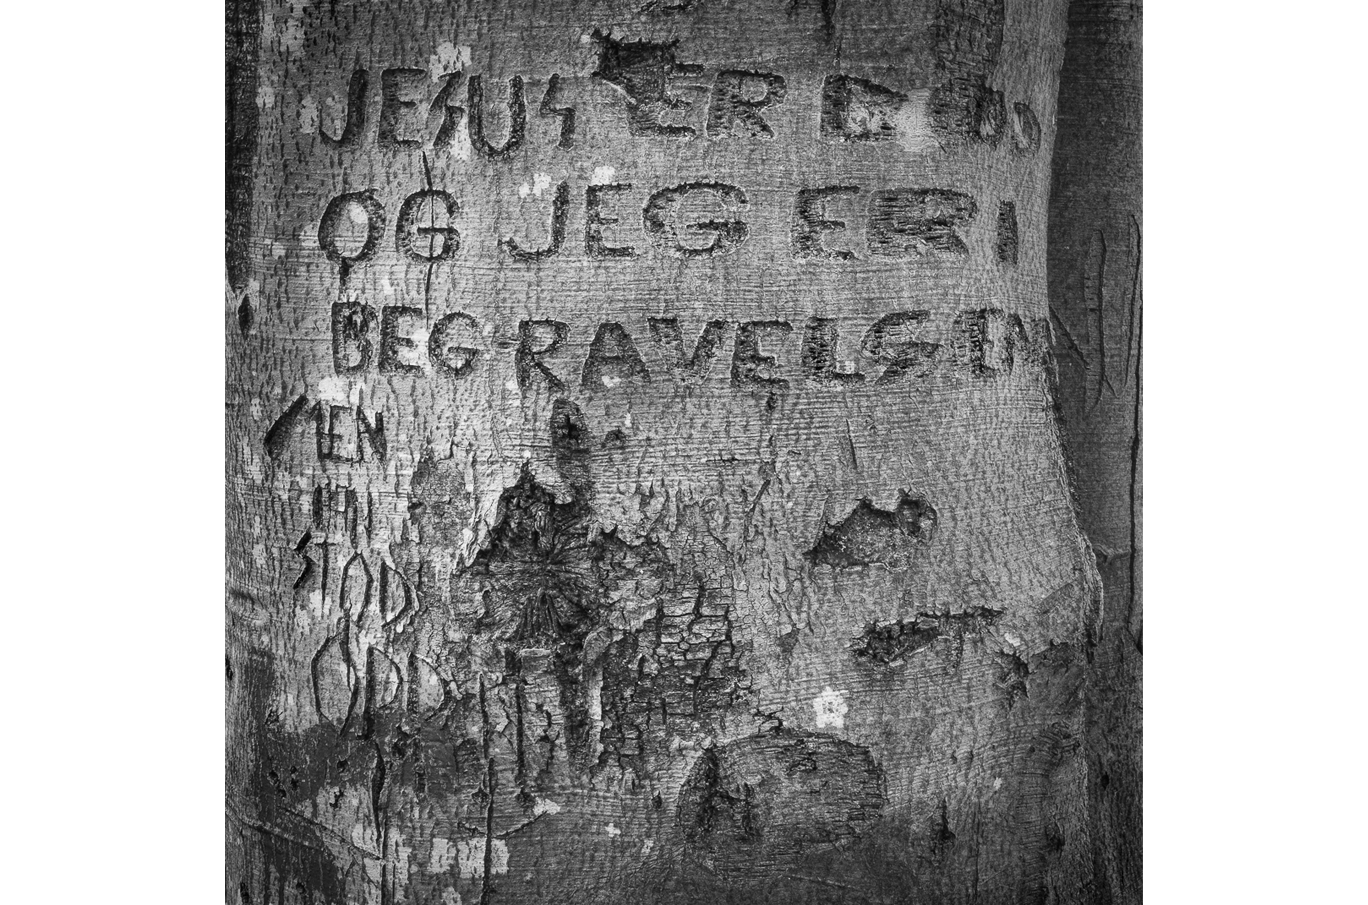 JESUS ER DØD
OG JEG ER I
BEGRAVELSEN
MEN
STOD